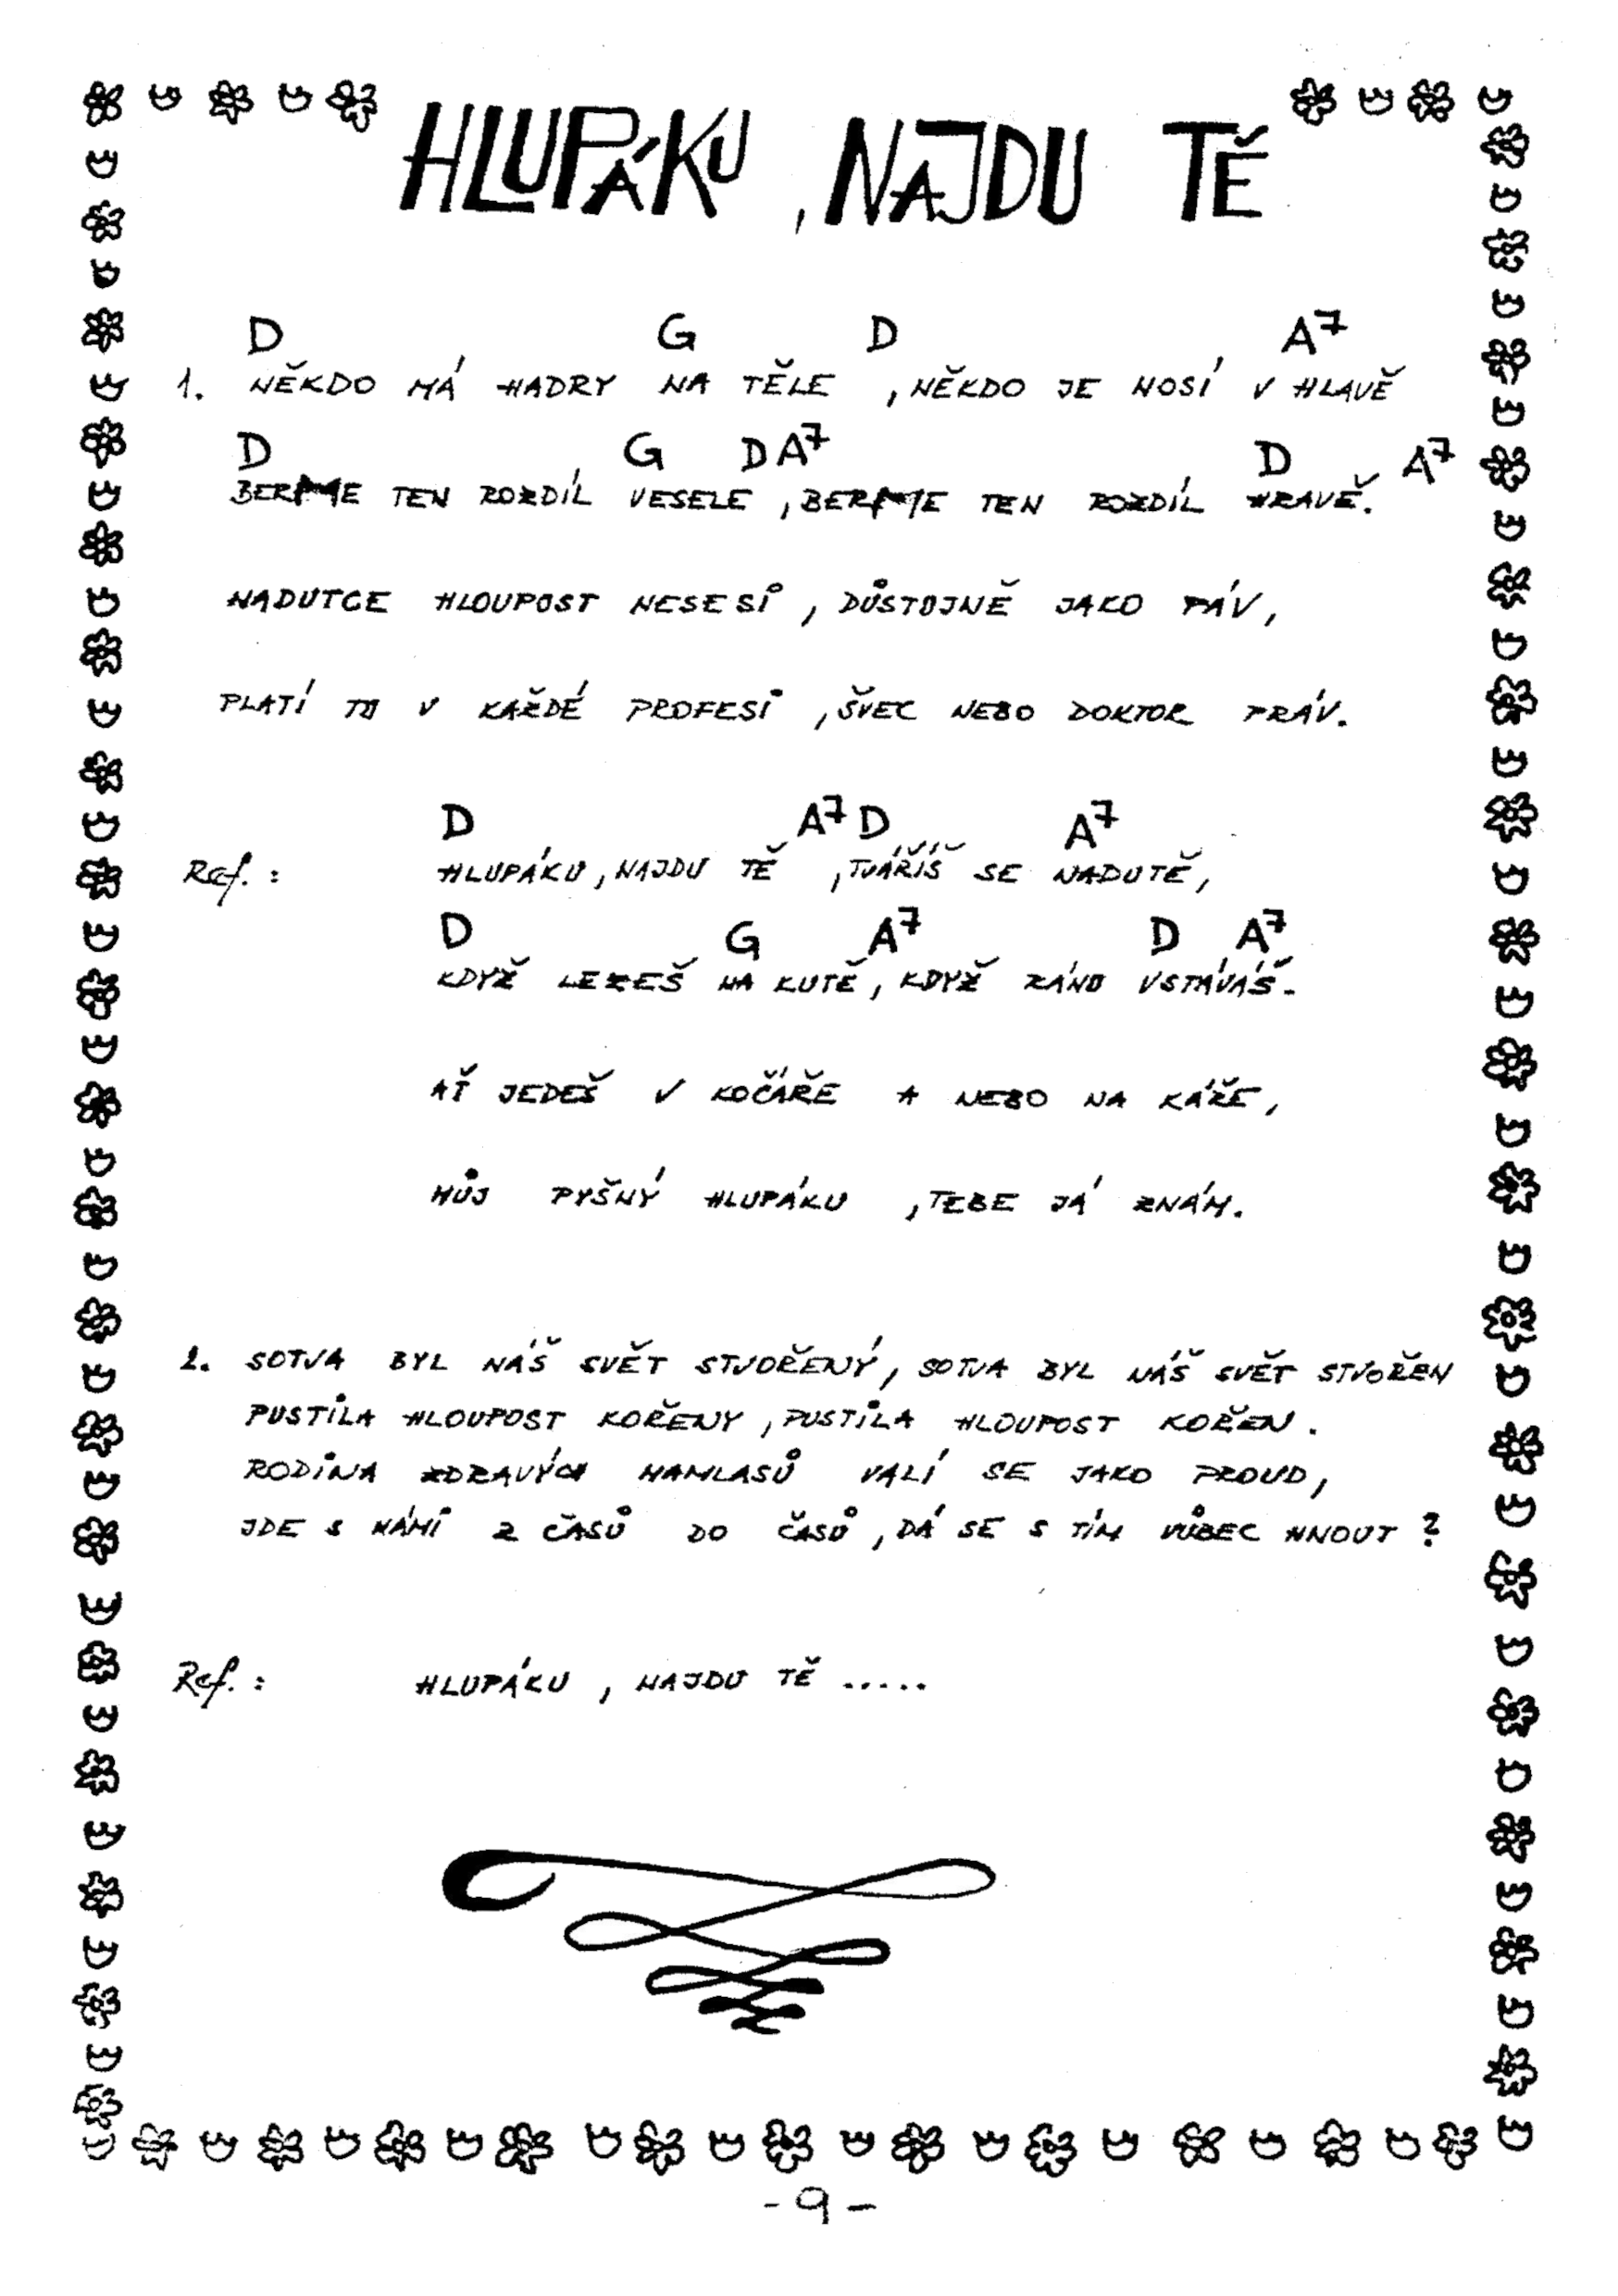 HLUPÁKU, NAJDU TĚ
D G D A7
1. NĚKDO MÁ HADRY NA TĚLE, NĚKDO JE NOSÍ V HLAVĚ
D G D A7 D A7
BERME TEN ROZDÍL VESELE, BERME TEN ROZDÍL HRAVĚ.
NADUTCE HLOUPOST NESE SI, DŮSTOJNĚ JAKO PÁV,
PLATÍ TO V KAŽDÉ PROFESI, ŠVEC NEBO DOKTOR PRÁV.
D A7 D A7
Ref.: HLUPÁKU, NAJDU TĚ, TVÁŘÍŠ SE NADUTĚ,
D G A7 D A7
KDYŽ LEZEŠ NA KUTĚ, KDYŽ RÁNO VSTÁVÁŠ.
AŤ JEDEŠ V KOČÁŘE A NEBO NA KÁŘE,
MŮJ PYŠNÝ HLUPÁKU, TEBE JÁ ZNÁM.
2. SOTVA BYL NÁŠ SVĚT STVOŘENÝ, SOTVA BYL NÁŠ SVĚT STVOŘEN
PUSTILA HLOUPOST KOŘENY, PUSTILA HLOUPOST KOŘEN.
RODINA ZDRAVÝCH HAMLASŮ VALÍ SE JAKO PROUD,
JDE S NÁMI Z ČASŮ DO ČASŮ, DÁ SE S TÍM VŮBEC HNOUT?
Ref.: HLUPÁKU, NAJDU TĚ .....
-9-